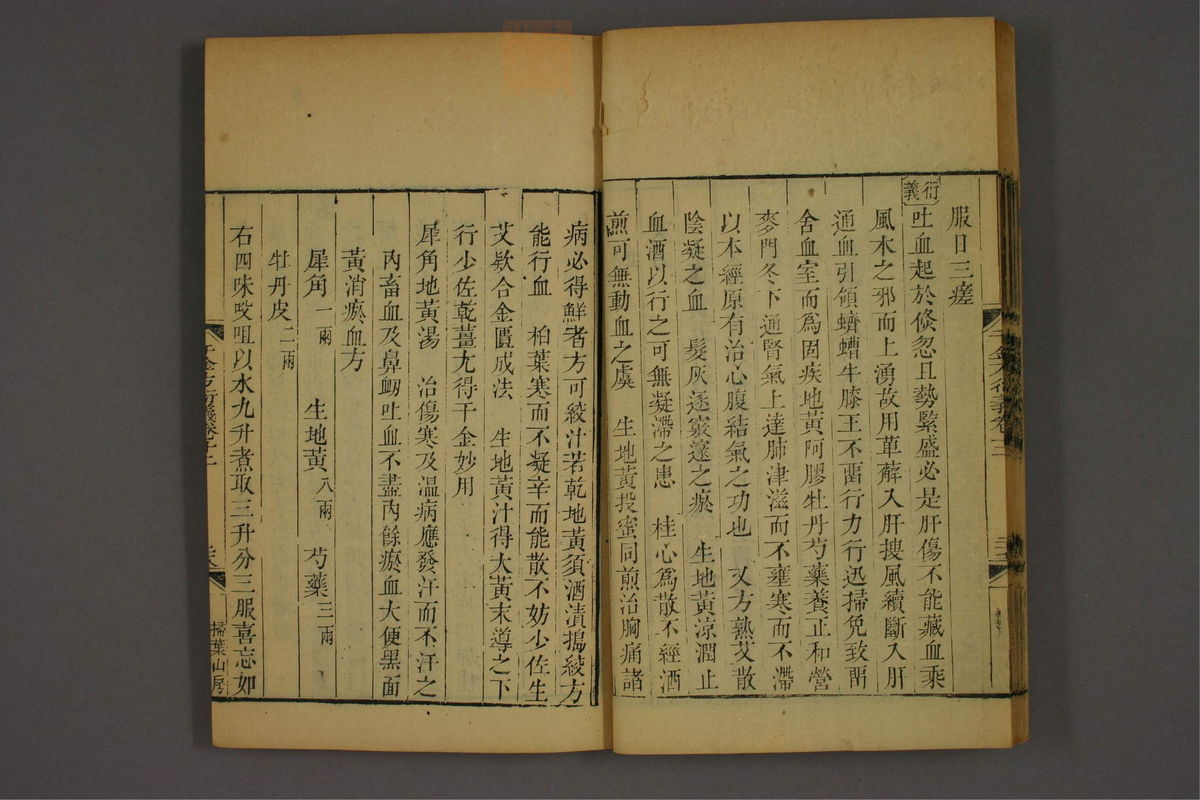 服日三瘥
衍義
吐血起於倏忽且勢緊盛必是肝傷不能藏血乘
風木之邪而上湧故用萆薢入肝搜風續斷入肝
通血引領蠐螬牛膝王不畱行力行迅掃免致畱
舍血室而爲固疾地黃阿膠牡丹芍藥養正和營
麥門冬下通腎氣上達肺津滋而不壅寒而不滯
以本經原有治心腹結氣之功也　又方熟艾散
陰凝之血　髮灰逐竅邃之瘀　生地黃涼潤止
血酒以行之可無凝滯之患　桂心爲散不經酒
煎可無動血之虞　生地黃投蜜同煎治胸痛諸
病必得鮮者方可絞汁若乾地黃須酒漬搗絞方
能行血　柏葉寒而不凝辛而能散不妨少佐生
艾欵合金匱成法　生地黃汁得大黃末導之下
行少佐乾薑尤得千金妙用
犀角地黃湯　治傷寒及溫病應發汗而不汗之
內畜血及鼻衂吐血不盡內餘瘀血大便黑面
黃消瘀血方
犀角一兩　生地黃八兩　芍藥三兩
牡丹皮二兩
右四味㕮咀以水九升煮取三升分三服喜忘如
千金方衍義卷十二
掃葉山房